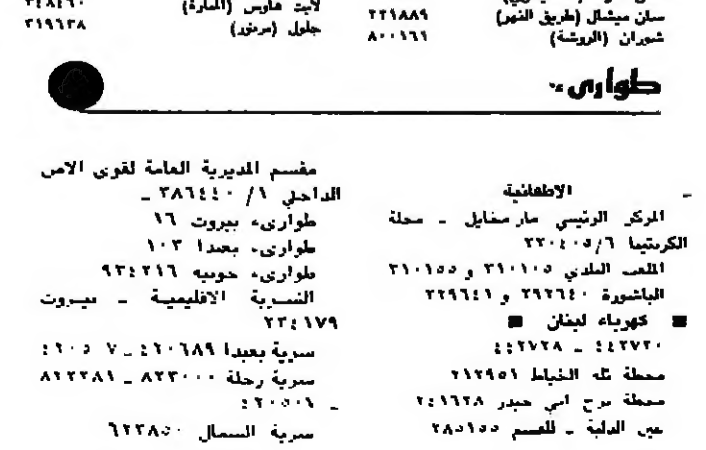 سان ميشال (طريق النهر) ٢٢١٨٨٩
شوران (الروشة) ٨٠٠١٦٦
لايت هاوس (المنارة)
جلول ٣١٩٦٣٨
طوارىء
الاطفائية
المركز الرئيسي مار مخايل ـ محلة
الكرنتينا ٢٢٠٤٠٥/٦
الملعب البلدي ٣١٠١٠٥ و ٣١٠١٥٥
الباشورة ٢٩٢٦٤٠ و ٢٢٩٦٤٦
■ كهرباء لبنان ■
٤٤٢٧٢٠ ـ ٤٤٢٧٢٨
محطة تلة الخياط ٢١٢٩٥١
محطة برج ابي حيدر ٢٤١٦٢٨
عين الدلبة ـ للقسم ٢٨٥١٥٥
مقسم المديرية العامة لقوى الامن
الداخلي ١/ ٣٨٦٤٤٠ ـ
طوارىء بيروت ١٦
طوارىء بعبدا ١٠٣
طوارىء جونيه ٩٣٤٢١٦
السرية الاقليمية ـ بيروت
٢٣٤١٧٩
سرية بعبدا ٤٦٠٦٨٩ ـ ٧
سرية زحلة ٨٢٣٠٠٠ ـ ٨٢٢٢٨١
ـ ٤٢٠٥٠٦
سرية الشمال ٦٢٣٨٥٠